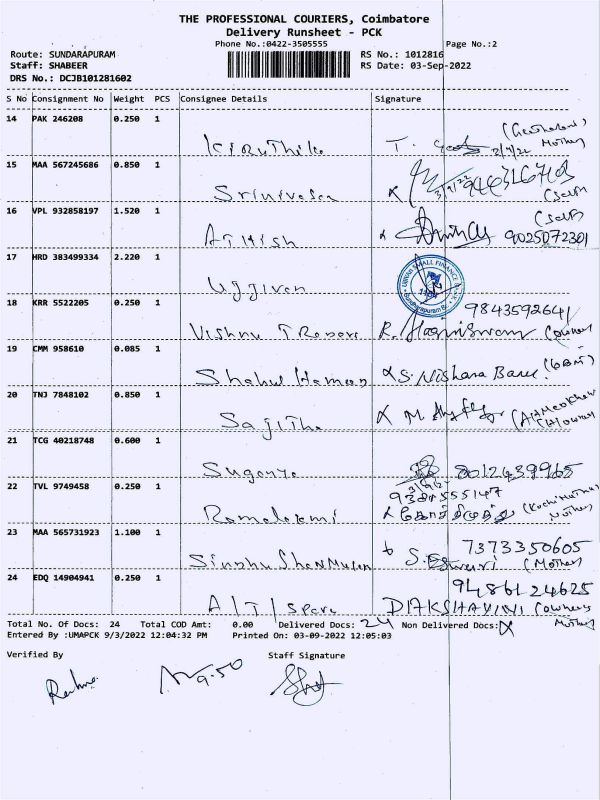 THE PROFESSIONAL COURIERS, Coimbatore
Delivery Runsheet - PCK
Phone No.:0422-3505555
Page No.:2
Route: SUNDARAPURAM RS No.: 1012816
Staff: SHABEER RS Date: 03-Sep-2022
DRS No.: DCJB101281602
S No Consignment No Weight PCS Consignee Details Signature
14 PAK 246208 0.250 1
Kiruthika Mother
15 MAA 567245686 0.850 1
Srinivasan 3/9/22
16 VPL 932858197 1.520 1
Athish 9025072301
17 HRD 383499334 2.220 1
Ujjivan
18 KRR 5522205 0.250 1
9843592641
Vishnu
19 CMM 958610 0.085 1
Shahul Hameed S. Nishara Banu
20 TNJ 7848102 0.850 1
Sajitha
21 TCG 40218748 0.600 1
Suganya 8012439965
22 TVL 9749458 0.250 1
Ramalaxmi Mother
23 MAA 565731923 1.100 1
7373350605
(Mother)
24 EDQ 14904941 0.250 1
9486124625
Mother
Total No. Of Docs: 24 Total COD Amt: 0.00 Delivered Docs: 24 Non Delivered Docs:
Entered By :UMAPCK 9/3/2022 12:04:32 PM Printed On: 03-09-2022 12:05:03
Verified By Staff Signature
9.50